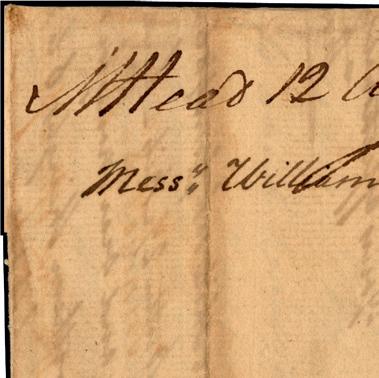 MHead 12 A
Mess.rs William